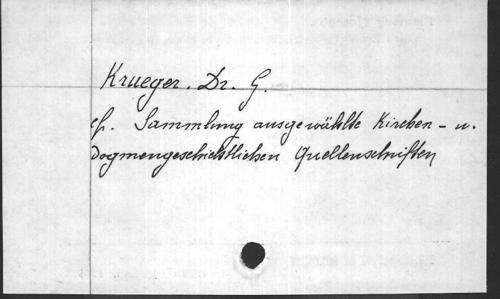 Krueger. Dr. G.
cf. Sammlung ausgewählte Kirchen- u.
Dogmengeschichtlichen Quellenschriften